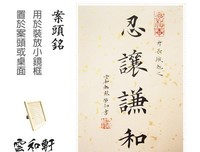 案頭銘
用於裝放小鏡框
置於案頭或桌面
雲和軒
忍讓謙和